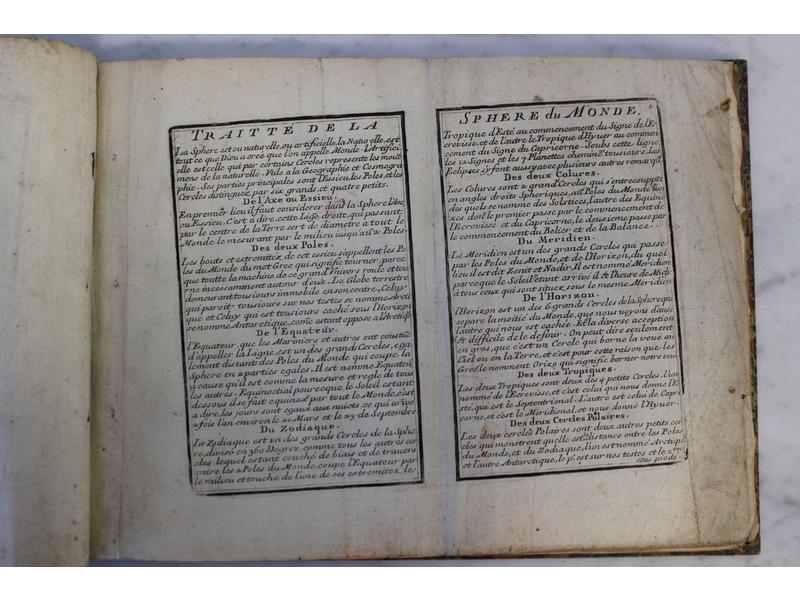 TRAITTE DE LA
La Sphere est ou naturelle, ou artificielle, la Naturelle, est
tout ce que Dieu a creé que l'on appelle Monde. L'Artifici
elle est celle qui par certains Cercles represente les mouue
mens de la naturelle. Vtile a la Geographie et Cosmogra
phie. Ses parties principales sont l'Essieu, les Poles, et les
Cercles distinguez par six grands, et quatre petits.
De l'Axe ou Essieu.
En premier lieu il faut considerer dans la Sphere l'Axe
ou Essieu, C'est a dire, cette Lige droite, qui passant
par le centre de la Terre sert de diametre a tout le
Monde le mesurant par le milieu iusqu'aux 2 Poles.
Des deux Poles.
Les bouts et extremitez de cet essieu s'appellent les Po
les du Monde du mot Grec qui signifie tourner, parce
que toutte la machine de ce grand Vniuers roule et tour
ne incessamment autour d'eux. Le Globe terrestre
demeurant tousiours immobile en son centre, Celuy
qui paroit tousiours sur nos testes se nomme Arcti
que et Celuy qui est tousiours caché sous l'Horizon
se nomme Antarctique, come estant oppose a l'Arctiq
De l'Equateur.
l'Equateur, que les Mariniers et autres ont coustume
d'appeller la Ligne, est un des grands Cercles, ega
lement distant des Poles du Monde qui coupe la
Sphere en 2 parties egales. Il est nommé Equateur
à cause qu'il est comme la mesure et regle de tous
les autres. Equinoctial pource que, le Soleil estant
dessous il se fait equinoxe par tout le Monde, c'est
a dire, les jours sont egaux aux nuicts, ce qui arriue
2 fois l'an enuiron le 21 Mars et le 23 de Septembre
Du Zodiaque.
Le Zodiaque est vn des grands Cercles de la Sphe
re, diuisé en 360 Degrez, comme tous les autres cer
cles, lequel estant couché de biais et de trauers
entre les 2 Poles du Monde, coupe l'Equateur par
le milieu et touche de l'une de ses extremitez le
SPHERE du MONDE.
6
Tropique d'Esté au commencement du Signe de l'E
creuisse, et de l'autre le Tropique d'Hyuer au commen
cement du Signe du Capricorne. Soubs cette ligne
les 12 Signes et les 7 Planettes cheminēt tousiours, Les
Eclipses s'y font aussy auec plusieurs autres remarq.
Des deux Colures.
Les Colures sont 2 grand Cercles qui s'entrecouppēt
en angles droits Spheriques, aux Poles du Monde l'un
des quels se nomme des Solstices, l'autre des Equino
xes dont le premier passe par le commencement de
l'Ecreuisse et du Capricorne, le deuxieme passe par
le commencement du Belier et de la Balance.
Du Meridien.
Le Meridien est un des grands Cercles qui passe
par les Poles du Monde, et de l'Horizon, du quel
lieu il est dit Zenit et Nadir, Il est nommé Meridien
parceque le Soleil étant arriué il est l'heure de Midy
à tous ceux qui sont situez sous le mesme Meridien
De l'Horizon.
l'Horizon est un des 6 grands Cercles de la Sphere qui
separe la moitié du Monde, que nous voyons dauec
l'autre qui nous est cachée. Et la diuerse acception
est difficile de le definir. On peut dire seulement
en gros, que c'est un Cercle qui borne la veüe au
Ciel ou en la Terre, et c'est pour cette raison que les
Grecs le nomment Orizo qui signifie borner notre veue
Des deux Tropiques.
Les deux Tropiques sont deux des 4 petits Cercles. L'un
nommé de l'Ecreuisse, et c'est celui qui nous donne l'E
sté, qui est le Septentrional. L'autre est celui de Capri
corne, et c'est le Meridional, et nous donne l'Hyuer.
Des deux Cercles Polaires.
Les deux cercles Polaires sont deux autres petits cer
cles qui monstrent quelle est la distance entre les Poles
du Monde, et du Zodiaque, l'un est nommé Arctique
et l'autre Antarctique, le pr. est sur nos testes et le 2me
sous pieds.